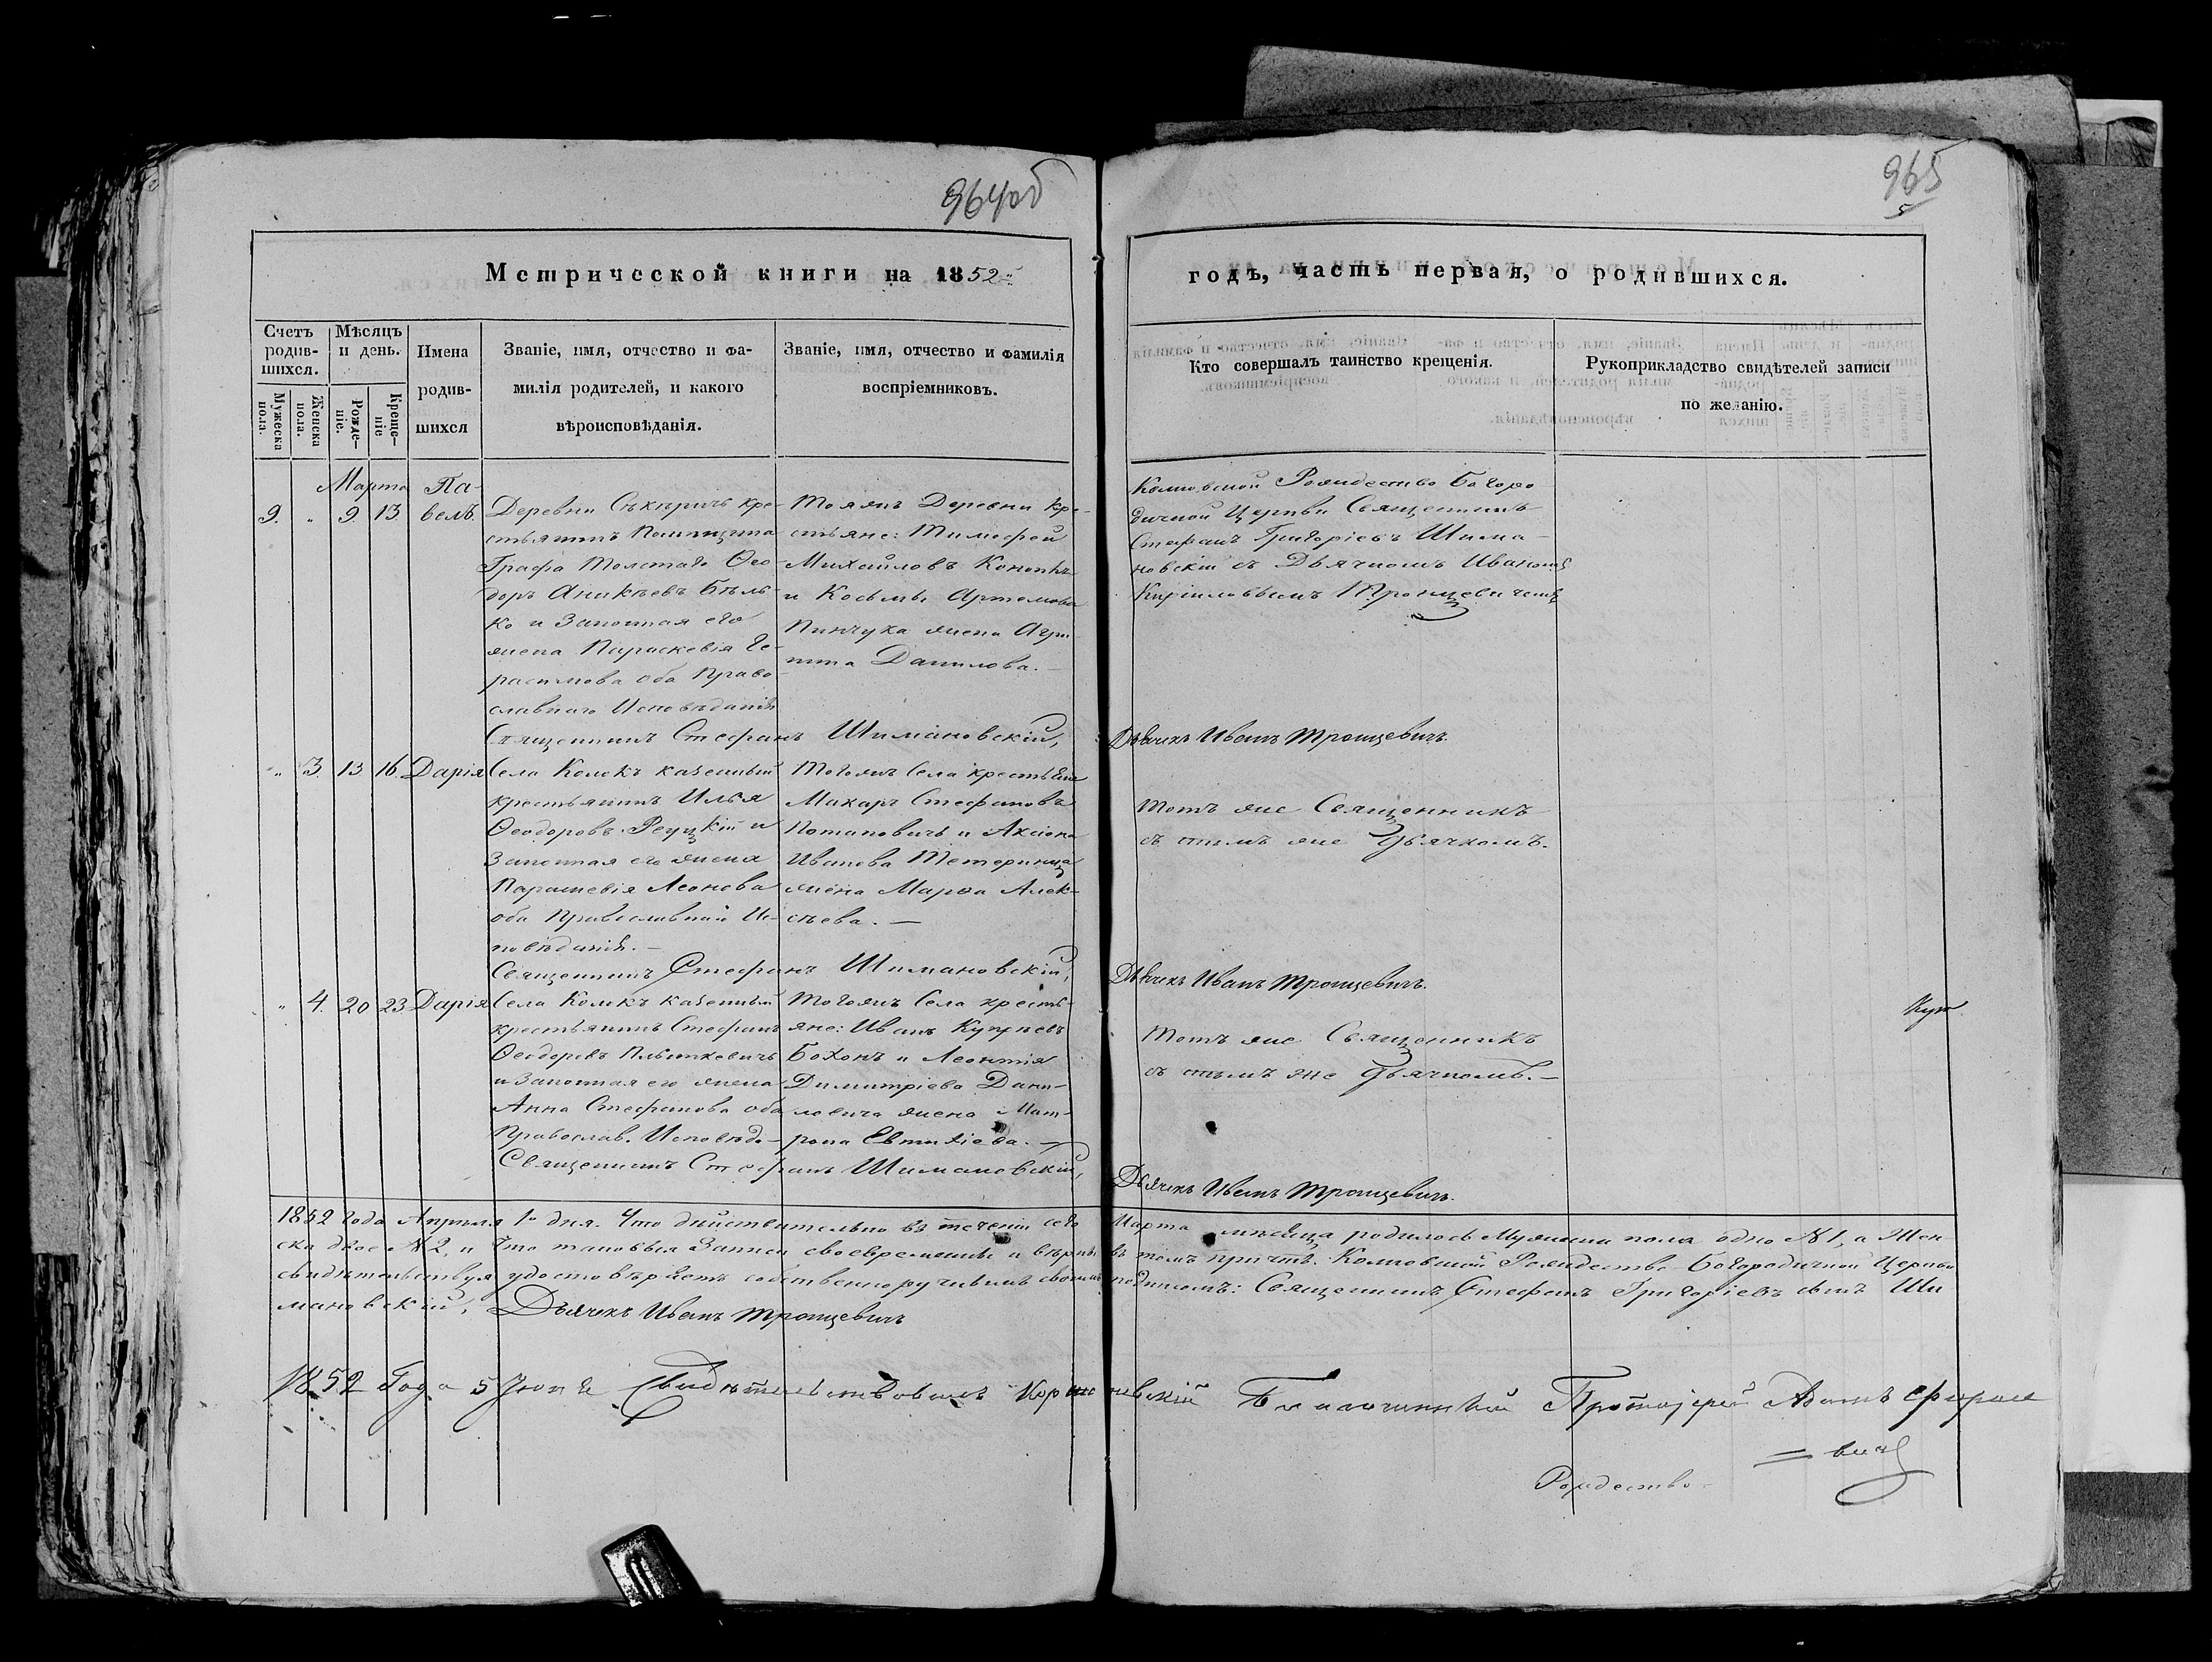 964об
965
5
Метрической книги на 1852
годъ, часть первая, о родившихся.
Счетъ родив-шихся.
Мужеска пола.
Женска пола.
Мѣсяцъ и день.
Рожде-ніе.
Креще-ніе
Имена
родив-
шихся
Званіе, имя, отчество и фа-
милія родителей, и какого
вѣроисповѣданія.
Званіе, имя, отчество и фамилія
воспріемниковъ.
Кто совершалъ таинство крещенія.
Рукоприкладство свидѣтелей записи
по желанію.
Марта
9. " 9 13.
Па-
велъ.
Деревни кре-
стьянинъ Помѣщика
Графа Толстаго Ѳео-
доръ Аникѣевъ Бѣль-
ко и Законная его
жена Параскевія Ге-
расимова оба Право-
славнаго Исповѣданія
Тояжъ Деревни кре-
стьяне: Тимофей
Михайловъ
и Косьмы Артемова
Пинчука жена Агри-
пина Данилова.—
Рождество Богоро
дичной Церкви Священникъ
Стефанъ Григоріевъ Шима-
новскій съ Дьячкомъ Иваномъ
Кирилловымъ Тронцевичемъ
Священникъ Стефанъ Шимановскій,
Дьячекъ Иванъ Тронцевичъ.
" 3. 13. 16. Дарія
Села Колокъ казенный
крестьянинъ Илья
Ѳеодоровъ Реуцкій и
Законная его жена
Параскевія Леонова
оба Православнаго Ис-
повѣданія.—
Тогожъ Села крестьяне
Макаръ Стефановъ
Потаповичъ и
Иванова
жена Марѳа Алек-
сѣева.—
Тотъ же Священникъ
съ тѣмъ же Дьячкомъ.
Священникъ Стефанъ Шимановскій,
Дьячекъ Иванъ Тронцевичъ.
" 4. 20 23 Дарія
Села Колокъ казенный
крестьянинъ Стефанъ
Ѳеодоровъ
и Законная его жена
Анна Стефанова оба
Православ. Исповѣда-
Тогожъ Села кресть-
яне: Иванъ
Боханъ и Леонтія
Димитріева Дани-
ловича жена Мат-
рона Евтихіева.—
Тотъ же Священникъ
съ тѣмъ же Дьячкомъ.—
Священникъ Стефанъ Шимановскій,
Дьячекъ Иванъ Тронцевичъ.
1852 года Апрѣля 1 дня. Что дѣйствительно въ теченіи сего Марта мѣсяца родилось Мужеска пола одно №1, а Жен-
ска двое №2, и что таковыя Записи своевременны и вѣрны въ томъ причтъ Рождество-Богородичной Церкви
свидѣтельствуя удостовѣряетъ собственноручнымъ своимъ подписомъ: Священникъ Стефанъ Григоріевъ сынъ Ши
мановскій, Дьячекъ Иванъ Тронцевичъ
1852 Года 5 Свидѣтельствовалъ Благочинный Протоіерей Адамъ
= вичъ
Рождество-